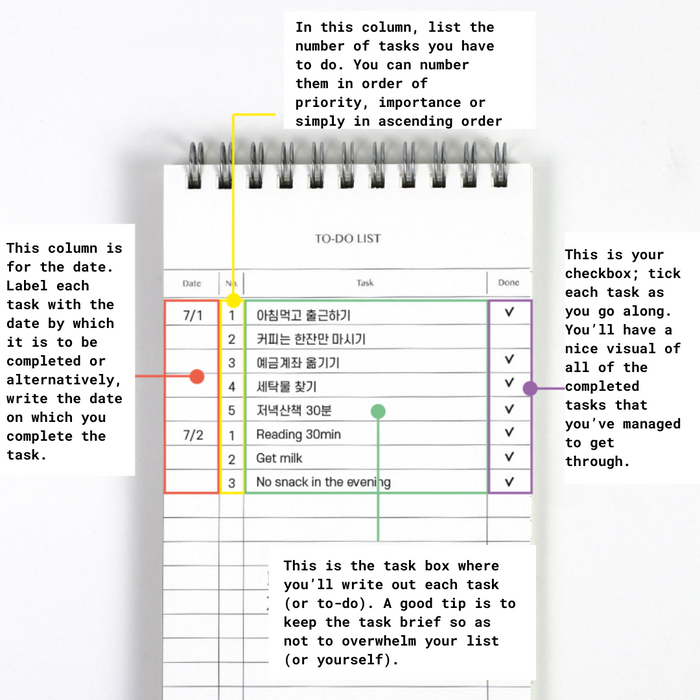 In this column, list the
number of tasks you have
to do. You can number
them in order of
priority, importance or
simply in ascending order
TO-DO LIST
Date No. Task Done
7/1 1 아침먹고 출근하기 ✓
2 커피는 한잔만 마시기
3 예금계좌 옮기기 ✓
4 세탁물 찾기 ✓
5 저녁산책 30분 ✓
7/2 1 Reading 30min ✓
2 Get milk ✓
3 No snack in the evening ✓
This column is
for the date.
Label each
task with the
date by which
it is to be
completed or
alternatively,
write the date
on which you
complete the
task.
This is your
checkbox; tick
each task as
you go along.
You'll have a
nice visual of
all of the
completed
tasks that
you've managed
to get
through.
This is the task box where
you'll write out each task
(or to-do). A good tip is to
keep the task brief so as
not to overwhelm your list
(or yourself).